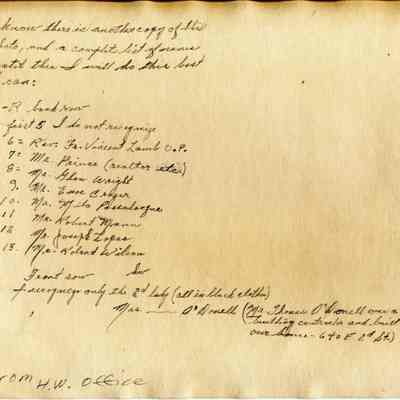 know there is another copy of the
and a complete list of names
until then I will do the best
I can:
-R back row
first 5 I do not recognize
6 = Rev. Fr. Vincent Lamb O.P.
7 = Mr. Prince (realtor
8 = Mr. Glen Wright
9. Mr.
10. Mr. Milo
11 Mr. Robert Mann
12 Mr. Joseph Lopes
13. Mr. Robert Wilson
Front row
I recognize only the 2d lady (all in black cloth)
Mrs. —— O'Donell (Mr. Thomas O'Donell was a
building contractor and built
our home - 640 E 2d St.)
From H.W. Office